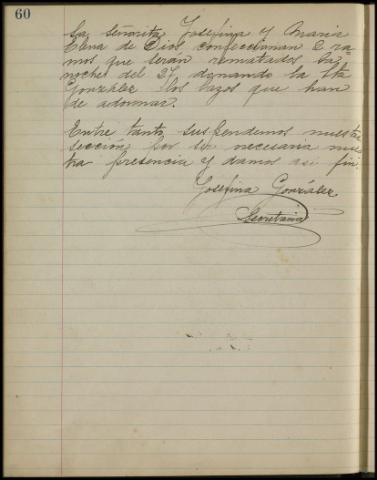 60
La señorita Josefina y Maria
Elena de Dios confeccionan 2 ra-
mos que serán rematados la
noche del 27, donando la Sta
González los lazos que han
de adornar.
Entre tanto, suspendemos nuestra
sección por ser necesaria nues-
tra presencia y damos así fin.
Josefina González
Secretaria